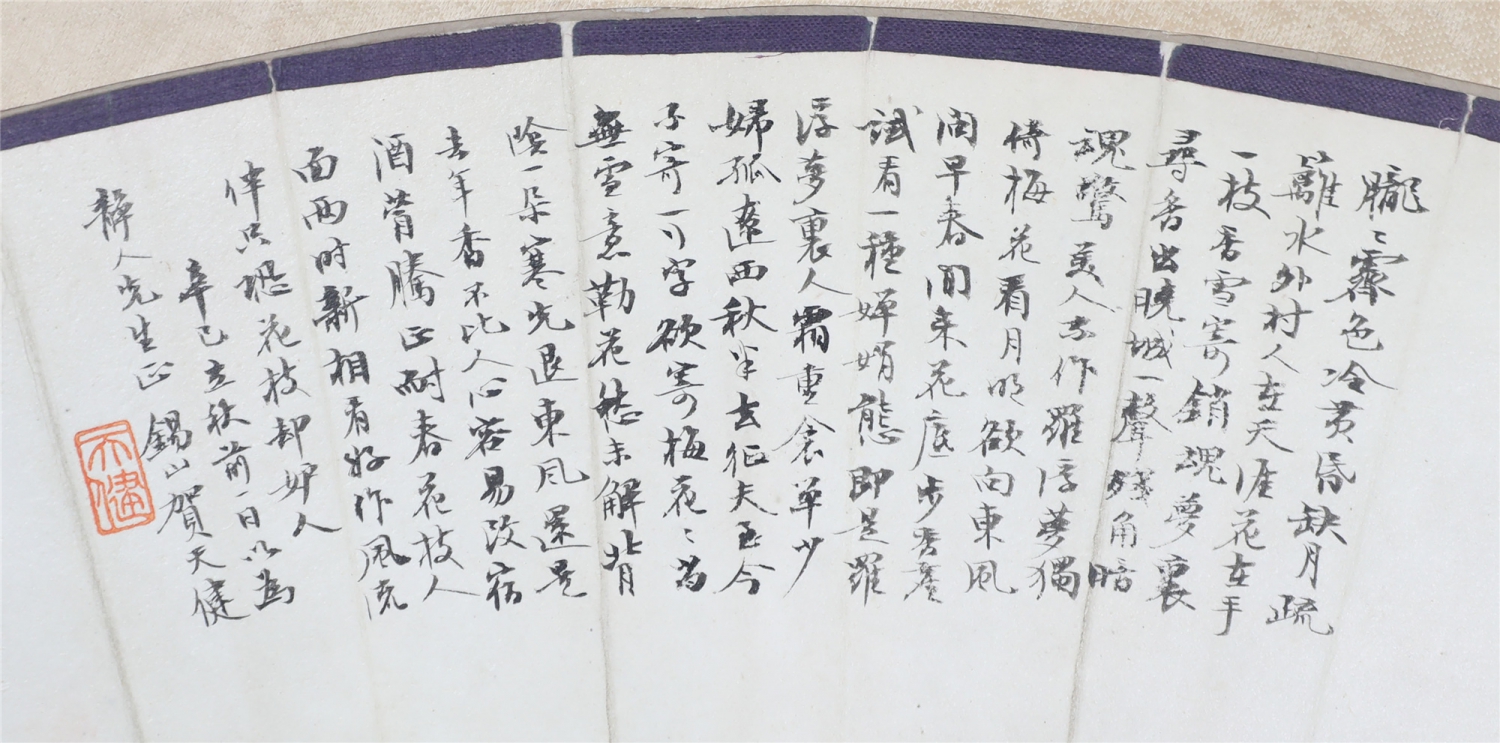 朧〻霽色冷黄昏缺月疏
籬水外村人在天涯花在手
一枝香雪寄銷魂夢裏
尋香出曉城一聲殘角暗
魂驚美人去作羅浮夢獨
倚梅花看月明欲向東風
問早春閒来花底步芳塵
試看一種嬋娟態即是羅
浮夢裏人霜重衾單少
婦孤遼西秋半去征夫至今
不寄一行字欲寄梅花〻尚
無雪意勒花愁未解背
陰一朵寒先退東風還是
去年香不比人心容易改宿
酒瞢騰正耐春花枝人
面兩時新相看好作風流
伴只恐花枝却妒人
辛巳立秋前一日以為
韡人先生正 錫山賀天健
天健